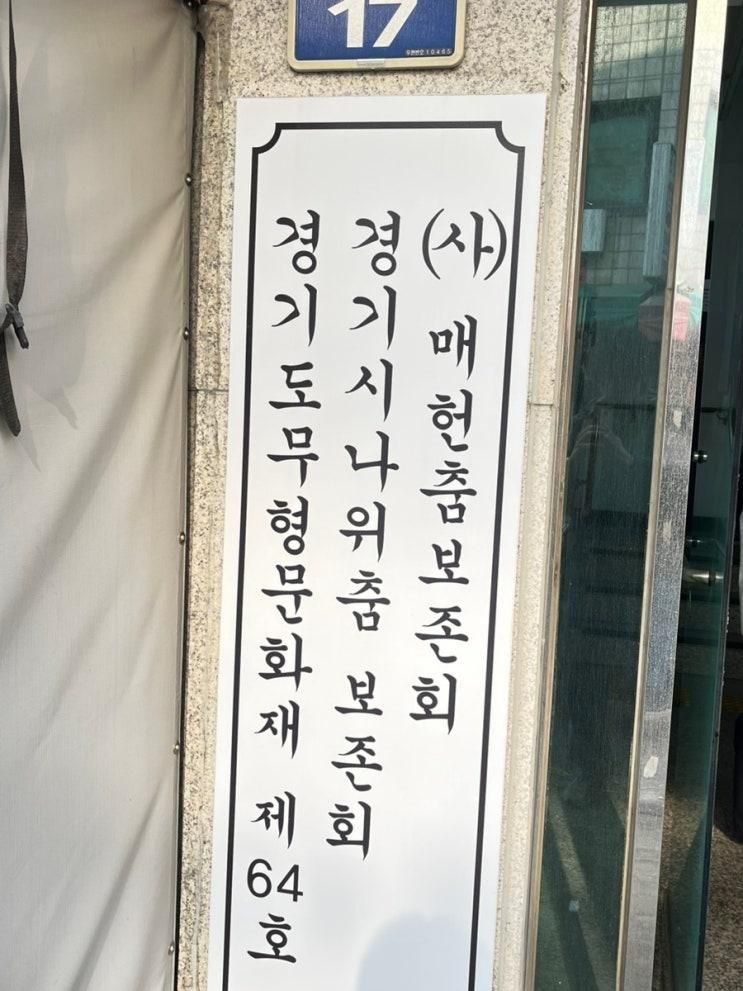 17
우편번호 10465
(사) 매헌춤보존회
경기시나위춤 보존회
경기도무형문화재 제64호